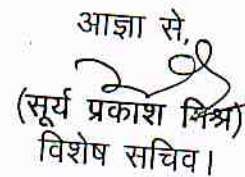 आज्ञा से,
(सूर्य प्रकाश मिश्र)
विशेष सचिव।